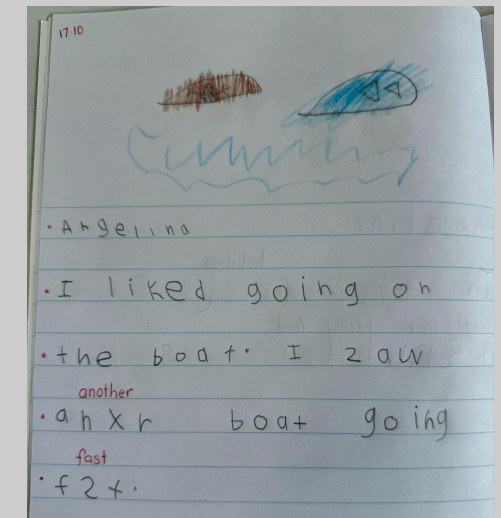 17.10
Angelina
I liked going on
the boat. I zaw
another
anxr boat going
fast
f2x.